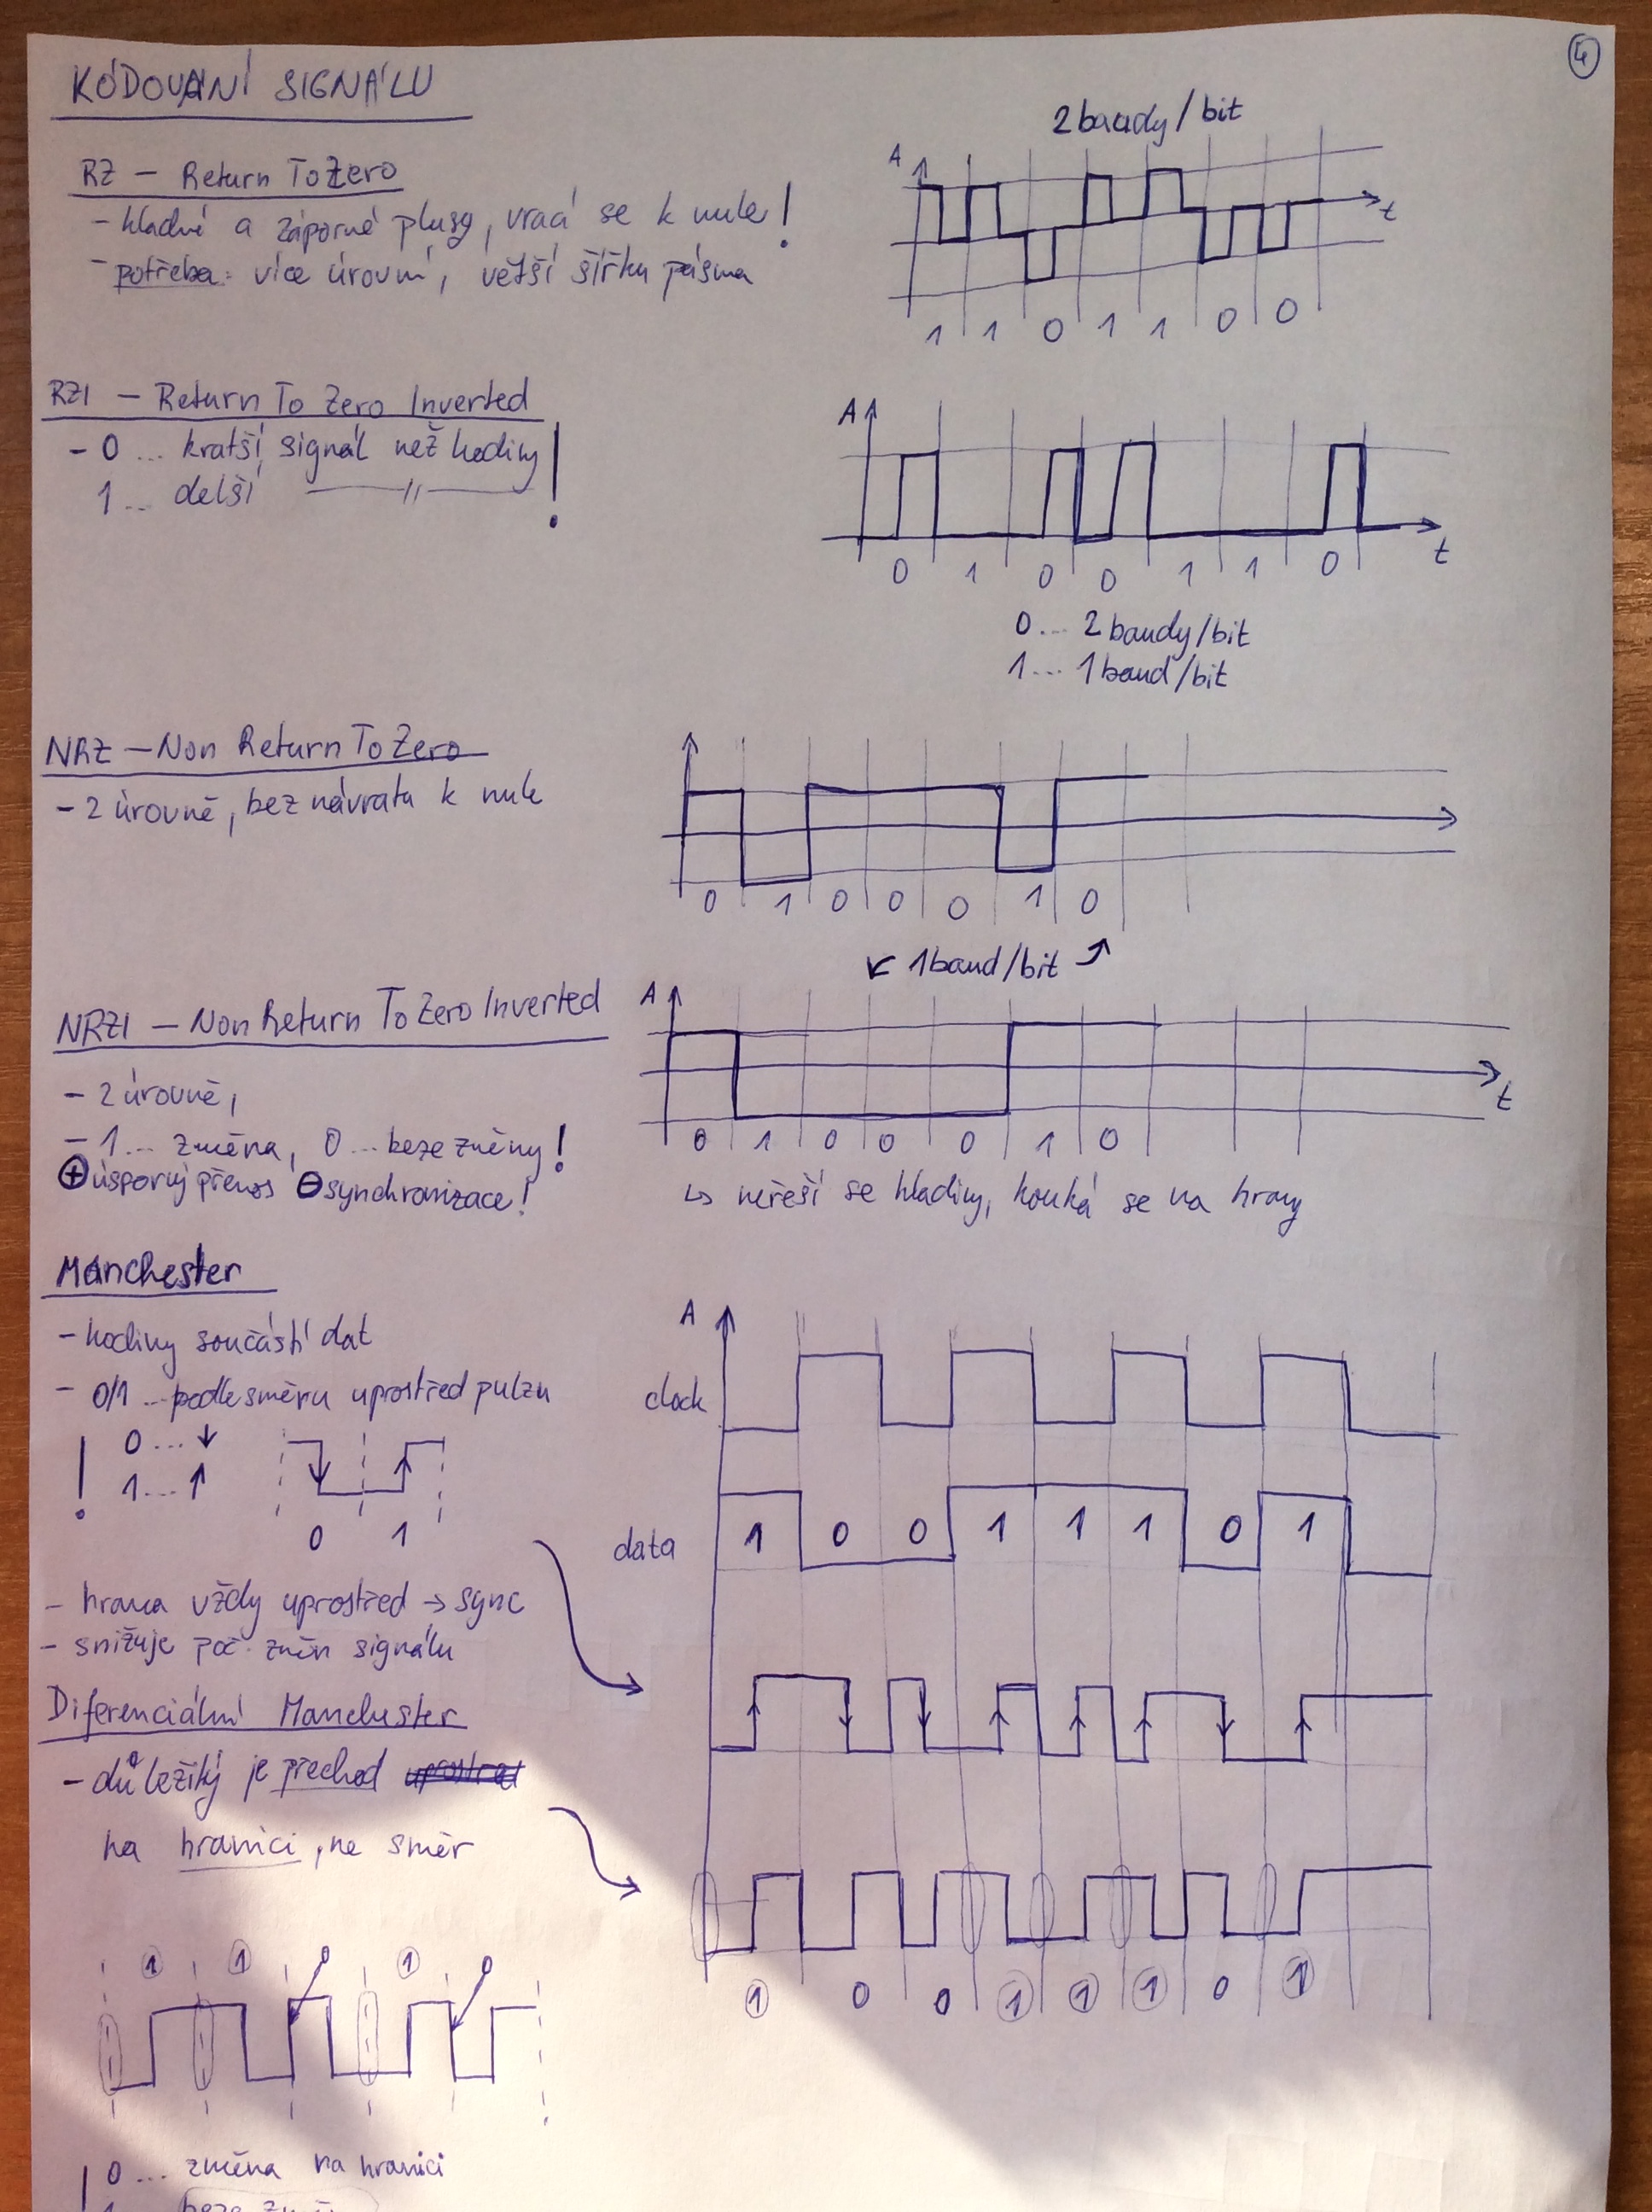 4
KÓDOVÁNÍ SIGNÁLU
RZ – Return To Zero
- kladné a záporné pulsy, vrací se k nule!
- potřeba: více úrovní, větší šířku pásma
2 baudy/bit
A
t
1 1 0 1 1 0 0
RZI – Return To Zero Inverted
- 0 ... kratší signál než hodiny
1 ... delší —— || ——
!
A
t
0 1 0 0 1 1 0
0 ... 2 baudy/bit
1 ... 1 baud/bit
NRZ – Non Return To Zero
- 2 úrovně, bez návratu k nule
0 1 0 0 0 1 0
↖ 1 baud/bit ↗
NRZI – Non Return To Zero Inverted
- 2 úrovně,
- 1 ... změna, 0 ... beze změny!
⊕ úsporný přenos ⊖ synchronizace!
A
t
0 1 0 0 0 1 0
↳ neřeší se hladiny, kouká se na hrany
Manchester
- hodiny součástí dat
- 0/1 ... podle směru uprostřed pulzu
! 0 ... ↓
1 ... ↑
0 1
- hrana vždy uprostřed → sync
- snižuje poč. změn signálu
A
clock
data
1 0 0 1 1 1 0 1
Diferenciální Manchester
- důležitý je přechod
na hranici, ne směr
1 1 0 1 0
1 0 0 1 1 1 0 1
! 0 ... změna na hranici